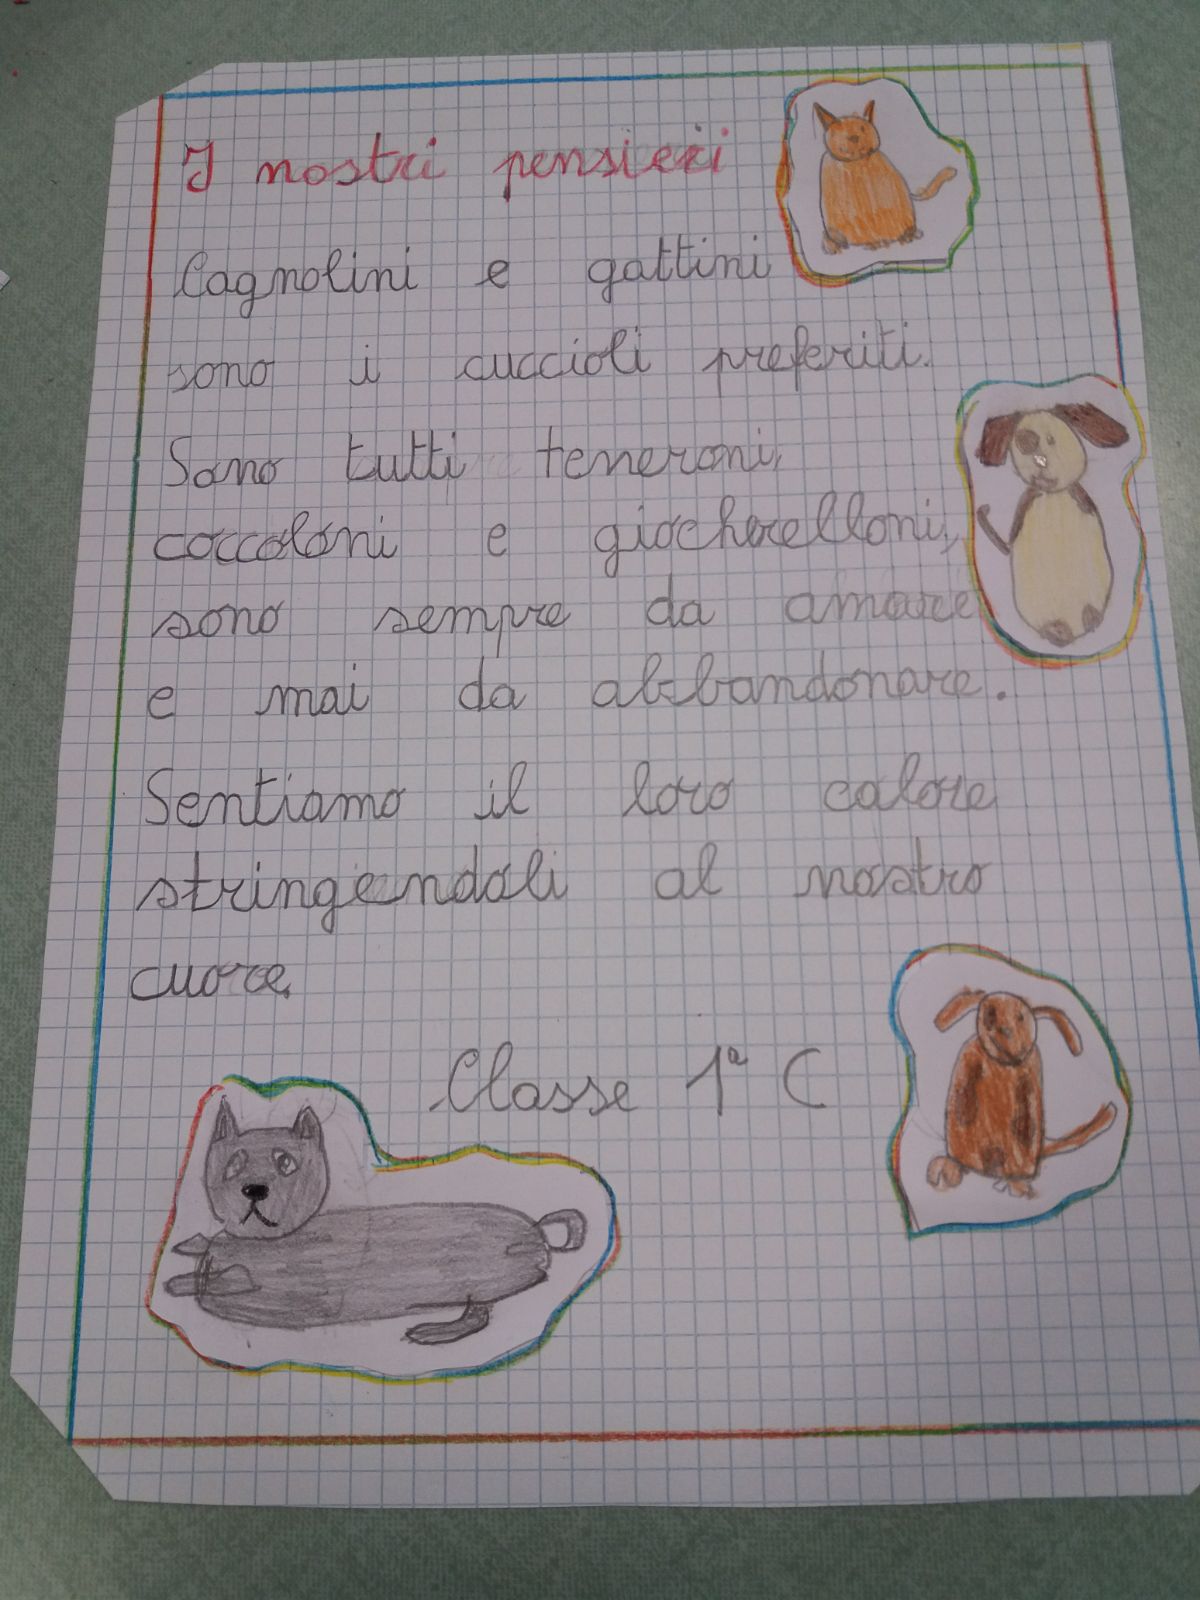 I nostri pensieri
Cagnolini e gattini
sono i cuccioli preferiti.
Sono tutti teneroni,
coccoloni e giocherelloni,
sono sempre da amare
e mai da abbandonare.
Sentiamo il loro calore
stringendoli al nostro
cuore.
Classe 1ª C